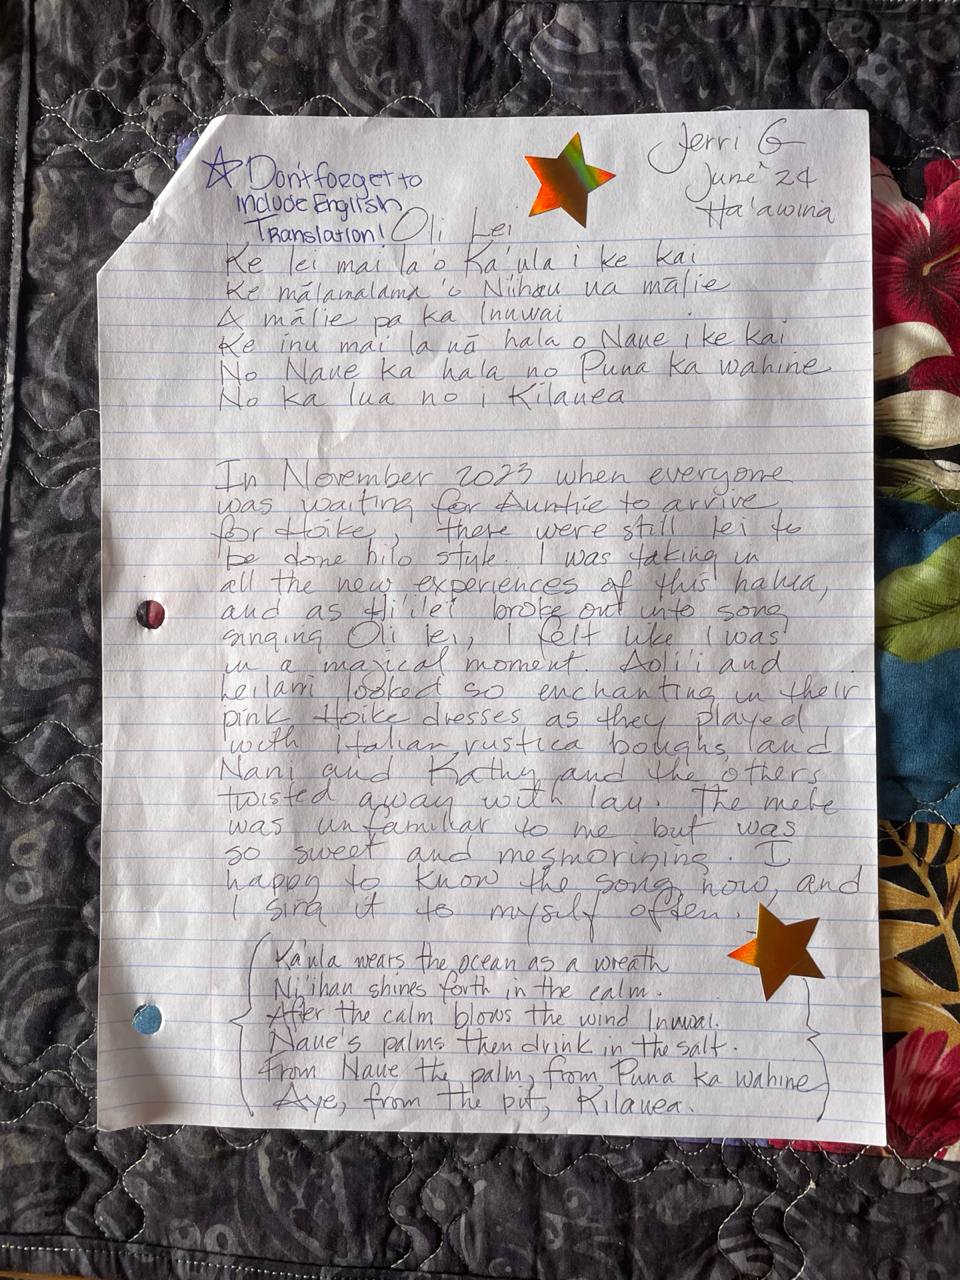 Jerri G
June 24
Ha'awina
☆ Don't forget to
include English
Translation!
Oli Lei
Ke lei mai la 'o Ka'ula i ke kai
Ke mālamalama 'o Niihau ua mālie
A mālie pa ka Inuwai
Ke inu mai la nā hala o Naue i ke kai
No Naue ka hala no Puna ka wahine
No ka lua no i Kilauea
In November 2023 when everyone
was waiting for Auntie to arrive
for Hoike, there were still lei to
be done hilo style. I was taking in
all the new experiences of this halua,
and as Hi'ilei broke out into song
singing Oli lei, I felt like I was
in a magical moment. Aoli'i and
Leilani looked so enchanting in their
pink Hoike dresses as they played
with Italian rustica boughs, and
Nani and Kathy and the others
twisted away with lau. The mele
was unfamiliar to me but was
so sweet and mesmorizing. I
happy to know the song now, and
I sing it to myself often.
Ka'ula wears the ocean as a wreath
Ni'ihau shines forth in the calm.
After the calm blows the wind Inuwai.
Naue's palms then drink in the salt.
From Naue the palm, from Puna ka wahine
Aye, from the pit, Kilauea.